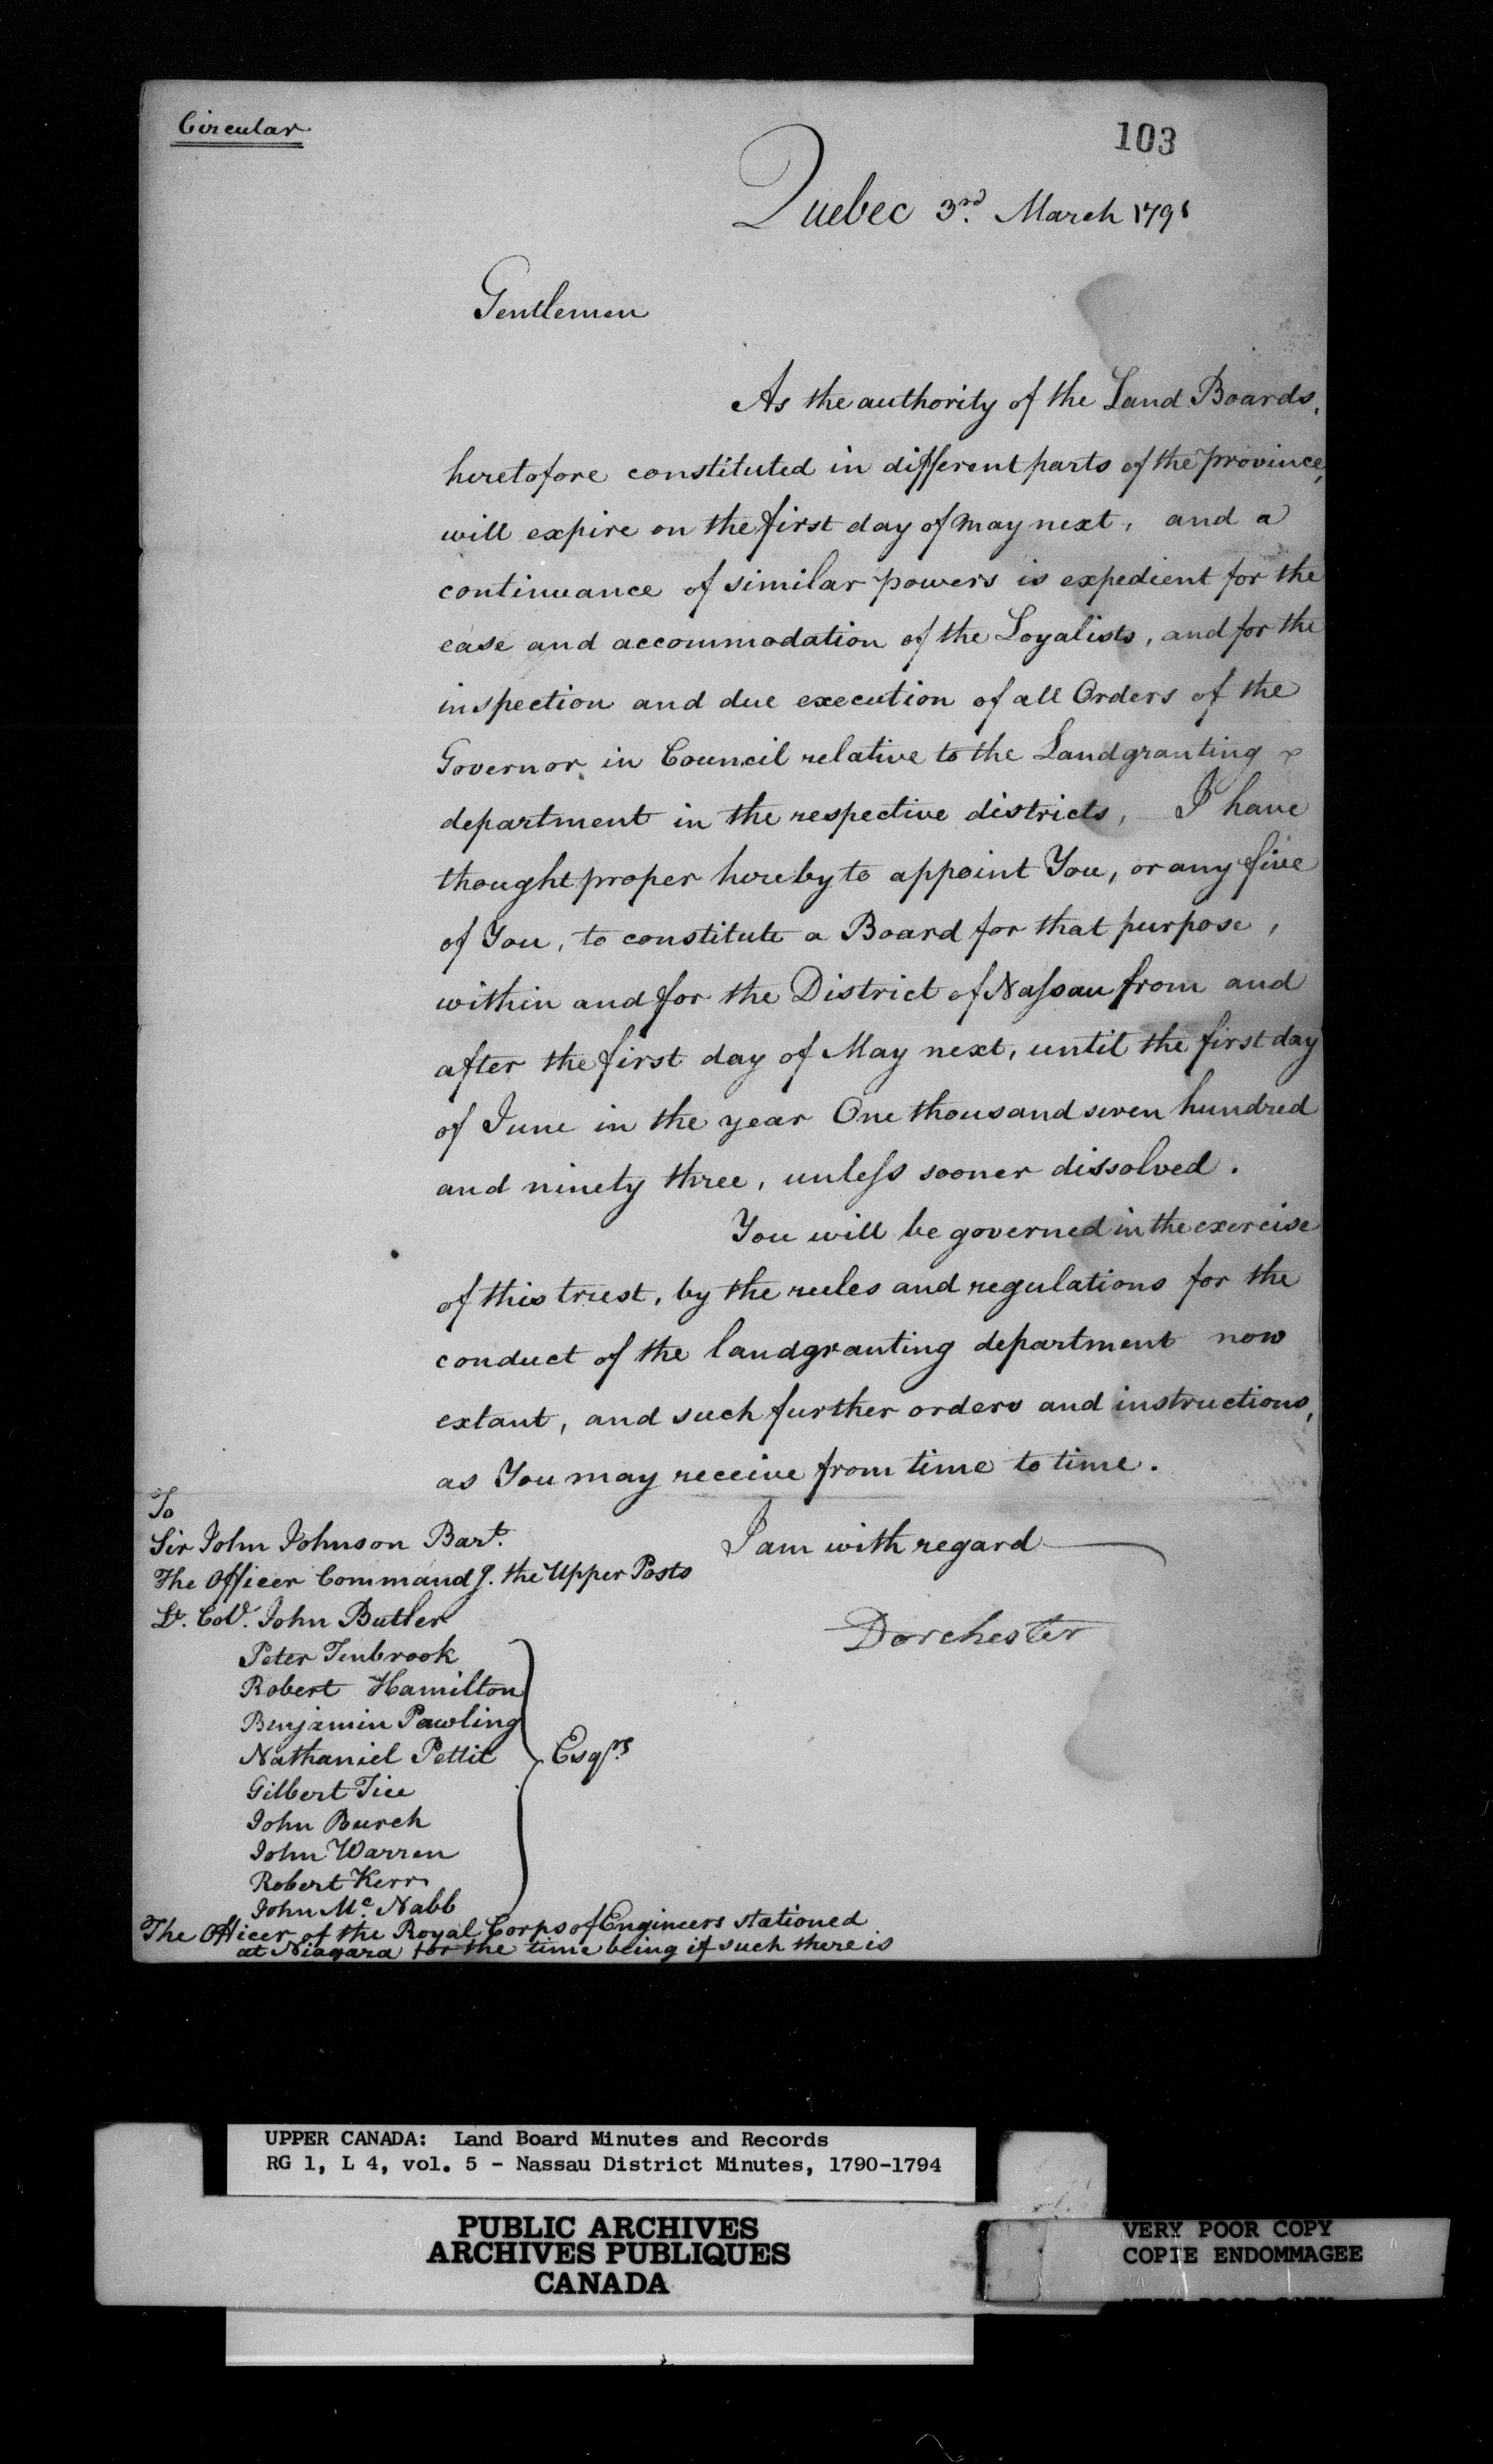 Circular
103
Quebec 3rd. March 1791
Gentlemen
As the authority of the Land Boards,
heretofore constituted in different parts of the province,
will expire on the first day of May next, and a
continuance of similar powers is expedient for the
ease and accommodation of the Loyalists, and for the
inspection and due execution of all Orders of the
Governor in Council relative to the Landgranting
department in the respective districts, I have
thought proper hereby to appoint You, or any five
of You, to constitute a Board for that purpose,
within and for the District of Naſsau from and
after the first day of May next, until the first day
of June in the year One thousand seven hundred
and ninety three, unleſs sooner dissolved.
You will be governed in the exercise
of this trust, by the rules and regulations for the
conduct of the landgranting department now
extant, and such further orders and instructions,
as You may receive from time to time.
I am with regard
Dorchester
To
Sir John Johnson Bart.
The Officer Commandg. the Upper Posts
Lt. Col. John Butler
Peter Tenbrook
Robert Hamilton
Benjamin Pawling
Nathaniel Pettit
Esqrs.
Gilbert Tice
John Burch
John Warren
Robert Kerr
John Mc. Nabb
The Officer of the Royal Corps of Engineers stationed
at Niagara for the time being if such there is
UPPER CANADA: Land Board Minutes and Records
RG 1, L 4, vol. 5 - Nassau District Minutes, 1790-1794
PUBLIC ARCHIVES
ARCHIVES PUBLIQUES
CANADA
VERY POOR COPY
COPIE ENDOMMAGEE